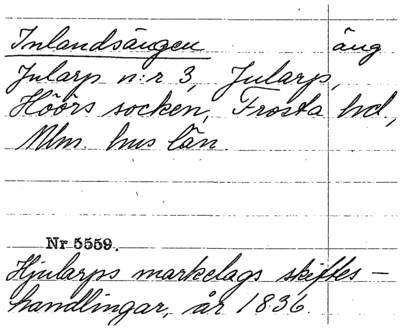 Inlandsängen äng
Jularp n:r 3, Jularp,
Höörs socken, Frosta hd,
Mlm. hus län.
Nr 5559.
Hjularps markelags skiftes-
handlingar, år 1836.